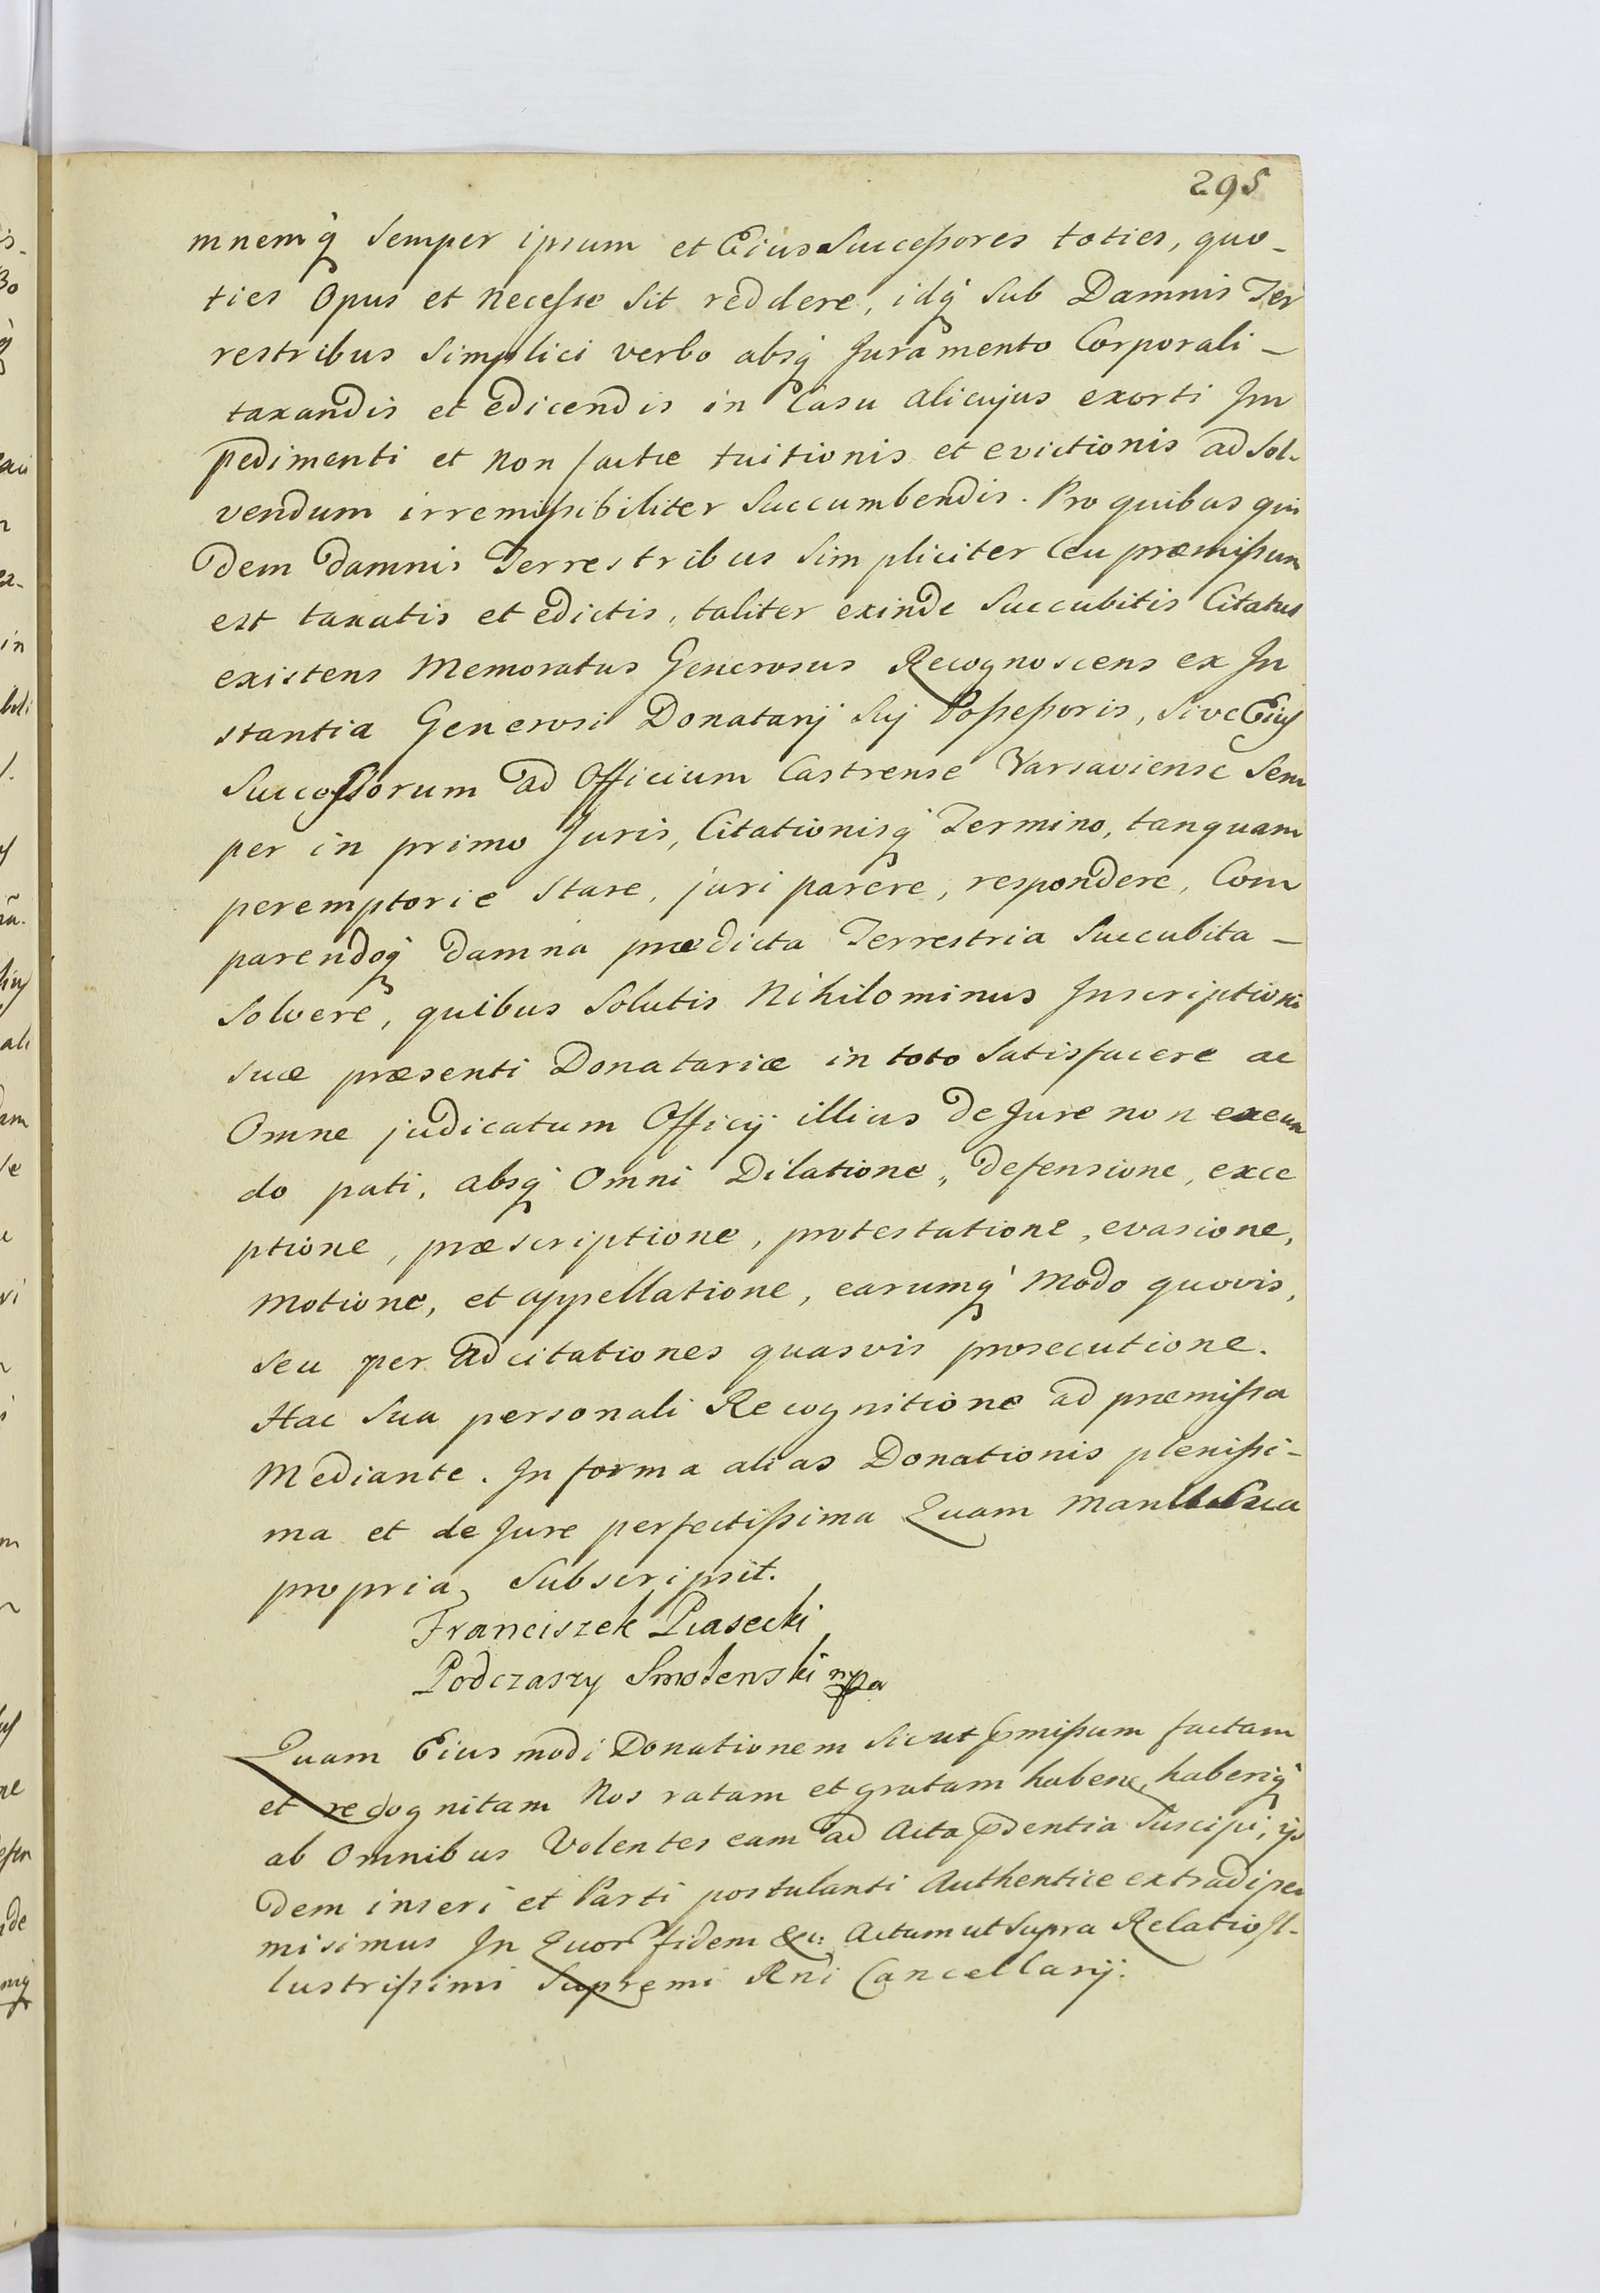 295
mnemq̀ Semper ipsum et Eius Successores toties, quo-
ties Opus et necesse Sit reddere, idq̀ Sub Damnis Ter
restribus Simplici verbo absq̀ Juramento Corporali -
taxandis et edicendis in Casu alicujus exorti Im
pedimenti et non factæ tuitionis et evictionis ad Sol-
vendum irremissibiliter Succumbendis. Pro quibus qui
dem damnis Terrestribus Simpliciter Ceu præmissum
est taxatis et edictis, taliter exinde Succubitis Citatus
existens Memoratus Generosus Recognoscens ex In
stantia Generosi Donatarij Sui Possessoris, Sive Eius
Successorum ad Officium Castrense Varsaviense Sem
per in primo Juris, Citationisq̀ Termino, tanquam
peremptorie Stare, juri parere, respondere, Com
parendoq̀ damna prædicta Terrestria Succubita -
Solvere, quibus Solutis Nihilominus Inscriptioni
suæ præsenti Donatariæ in toto Satisfacere ac
Omne judicatum Officij illius de Jure non exeun
do pati, absq̀ Omni Dilatione, defensione, exce
ptione, præscriptione, protestatione, evasione,
Motione, et appellatione, earumq̀ Modo quovis,
seu per adcitationes quasvis prosecutione.
Hac Sua personali Recognitione ad præmissa
Mediante. In forma alias Donationis plenissi-
ma et de Jure perfectissima Quam Manu Sua
propria Subscripsit.
Franciszek Piasecki
Podczaszy Smolenski mpa
Quam Eius modi Donationem Sicut pmissum factam
et recognitam Nos ratam et gratam habene, haberiq̀
ab Omnibus Volentes eam ad Acta pdentia Suscipi, ijs
dem inseri et Parti postulanti Authentice extradi per
misimus In Quor fidem &c: Actum ut Supra Relatio Il-
lustrissimi Supremi Rni Cancellarij.